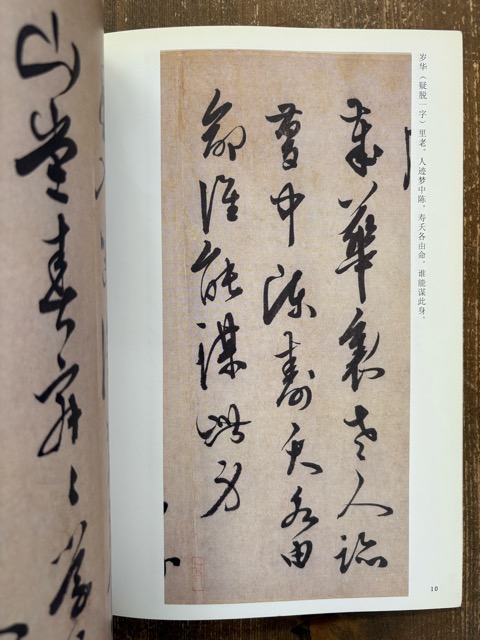 山堂春
歲華裏老人跡
夢中陳壽夭各由
命誰能謀此身
岁华（疑脱一字）里老，人迹梦中陈，寿夭各由命，谁能谋此身。
10